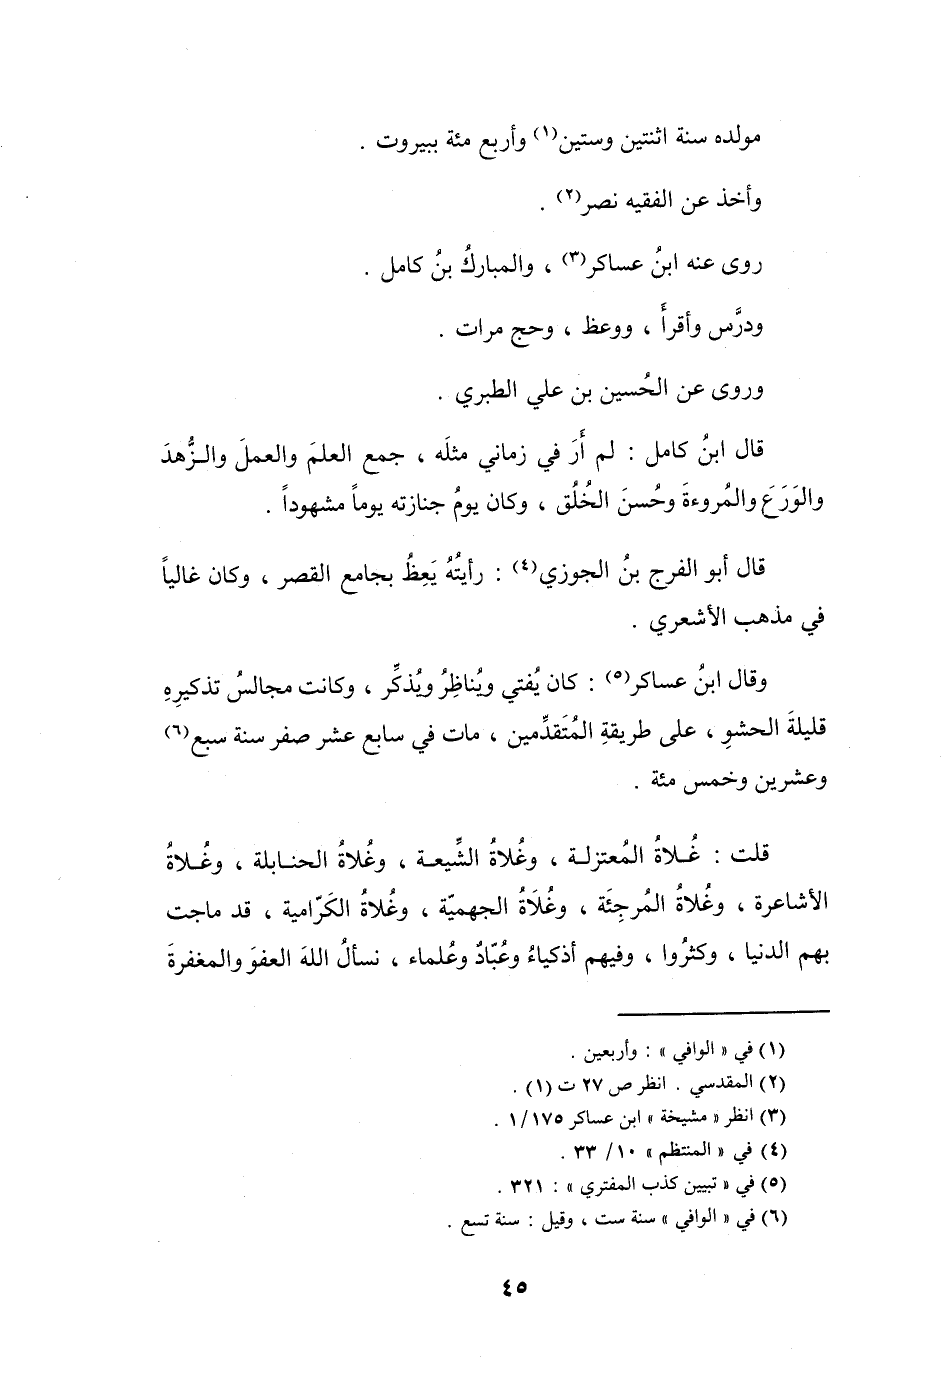 مولده سنة اثنتين وستين(١) وأربع مئة ببيروت .
وأخذ عن الفقيه نصر(٢) .
روى عنه ابنُ عساكر(٣) ، والمباركُ بنُ كامل .
ودرَّس وأقرأَ ، ووعظ ، وحج مرات .
وروى عن الحُسين بن علي الطبري .
قال ابنُ كامل : لم أَرَ في زماني مثلَه ، جمع العلمَ والعملَ والزُّهدَ
والوَرَعَ والمُروءةَ وحُسنَ الخُلُق ، وكان يومُ جنازته يوماً مشهوداً .
قال أبو الفرج بنُ الجوزي(٤) : رأيتُهُ يَعِظُ بجامع القصر ، وكان غالياً
في مذهب الأشعري .
وقال ابنُ عساكر(٥) : كان يُفتي ويُناظِرُ ويُذكِّر ، وكانت مجالسُ تذكيرِهِ
قليلةَ الحشوِ ، على طريقةِ المُتَقدِّمين ، مات في سابع عشر صفر سنة سبع(٦)
وعشرين وخمس مئة .
قلت : غُلاةُ المُعتزلة ، وغُلاةُ الشِّيعة ، وغُلاةُ الحنابلة ، وغُلاةُ
الأشاعرة ، وغُلاةُ المُرجِئَة ، وغُلَاةُ الجهميّة ، وغُلاةُ الكَرّامية ، قد ماجت
بهم الدنيا ، وكثرُوا ، وفيهم أذكياءُ وعُبّادٌ وعُلماء ، نسألُ اللهَ العفوَ والمغفرةَ
(١) في « الوافي » : وأربعين .
(٢) المقدسي . انظر ص ٢٧ ت (١) .
(٣) انظر « مشيخة » ابن عساكر ١/١٧٥ .
(٤) في « المنتظم » ١٠/ ٣٣ .
(٥) في « تبيين كذب المفتري » : ٣٢١ .
(٦) في « الوافي » سنة ست ، وقيل : سنة تسع .
٤٥